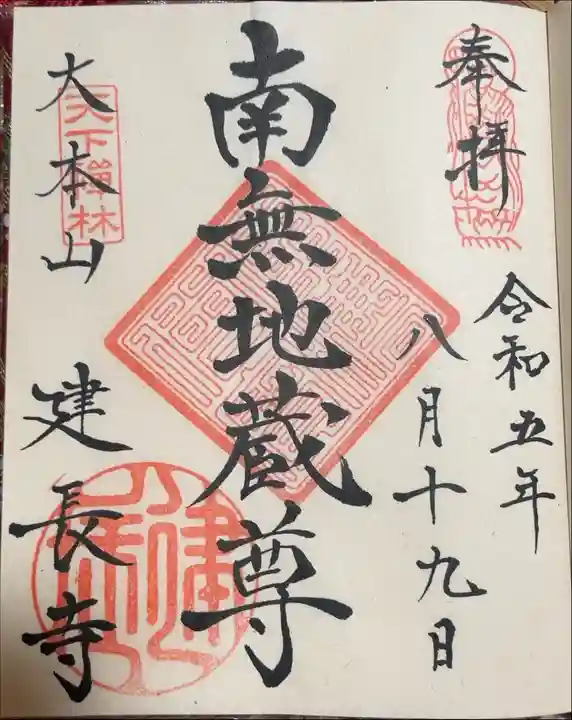 奉拝
令和五年
八月十九日
南無地蔵尊
大本山
建長寺
天下禅林